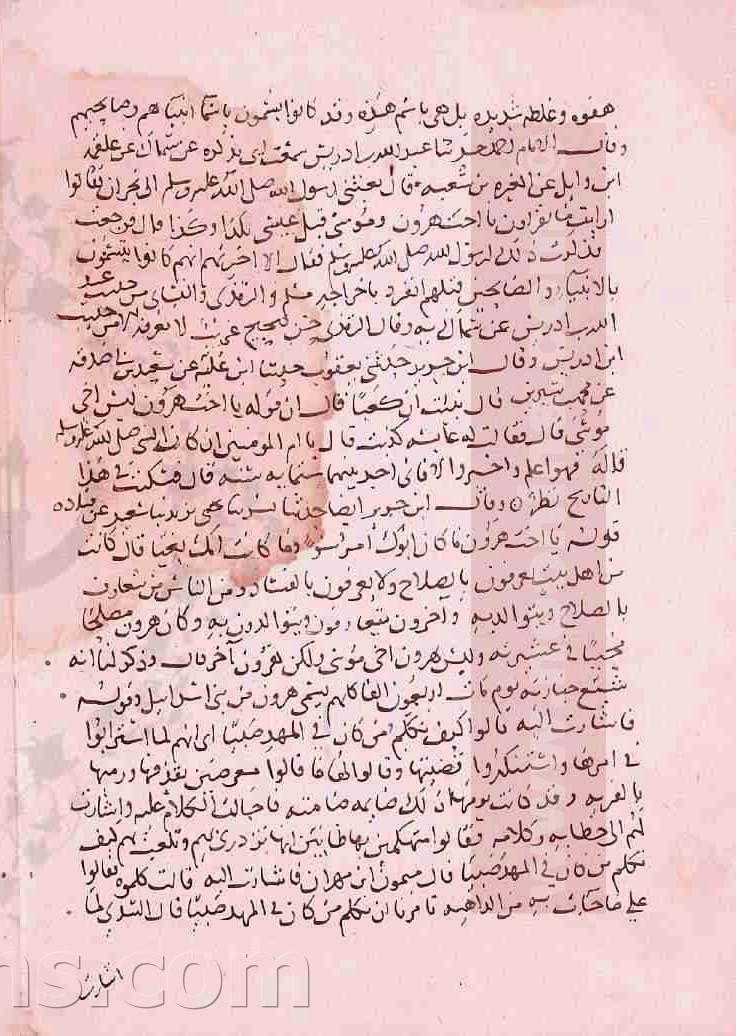 هفوه وغلطه شديده بل هي باسم هذه وقد كانوا يسمون باسما انبيا هم وصالحيهم
وقال الامام احمد حدثنا عبد الله بن ادريس سمعت ابي يذكره عن سماك عن علقمه
ابن وايل عن المغيره بن شعبه قال بعثني رسول الله صلى الله عليه وسلم الى نجران فقالوا
ارايت ما تقراون يا اخت هرون وموسى قبل عيسى بكذا وكذا قال فرجعت
فذكرت ذلك لرسول الله صلى الله عليه وسلم فقال الا اخبرتهم انهم كانوا يتسمون
بالانبيا والصالحين قبلهم انفرد باخراجه مسلم والترمذي والنساي من حديث عبد
الله بن ادريس عن سماك به وقال الترمذي حسن صحيح غريب لا نعرفه الا من حديث
ابن ادريس وقال ابن جرير حدثني يعقوب حدثنا ابن عليه عن سعيد بن ابي صدقه
عن محمد بن سيرين قال نبئت ان كعبا قال ان قوله يا اخت هرون ليس اخي
موسى قال فقالت له عائشه كذبت قال يا ام المومنين ان كان النبي صلى الله عليه وسلم
قاله فهو اعلم واخبر والا فاني اجد بينهما ستمايه سنه قال فسكتت وفي هذا
التاريخ نظر وقال ابن جرير ايضا حدثنا بشر ثنا يزيد ثنا سعيد عن قتاده
قوله يا اخت هرون ما كان ابوك امرا سوء وما كانت امك بغيا قال كانت
من اهل بيت يعرفون بالصلاح ولا يعرفون بالفساد ومن الناس من يتعارف
بالصلاح ويتوالد به واخرون يتعارفون ويتوالدون به وكان هرون مصلحا
محببا في عشيرته وليس هرون اخي موسى ولكن هرون آخر قال وذكر لنا انه
شيع جنازته يوم مات اربعون الفا كلهم يسمى هرون من بني اسرايل وقوله
فاشارت اليه قالوا كيف نكلم من كان في المهد صبيا اي انهم لما استرابوا
في امرها واستنكروا قضيتها وقالوا لها ما قالوا معرضين بقذفها ورميها
بالفريه وقد كانت يومها ذلك صايمه صامته فاحالت الكلام عليه واشارت
لهم الى خطابه وكلامه فقالوا متهكمين بها ظانين انها تزدري بهم وتلعب بهم كيف
نكلم من كان في المهد صبيا قال ميمون ابن مهران فاشارت اليه قالت كلموه فقالوا
على ما جات به من الداهيه تامرنا ان نكلم من كان في المهد صبيا قال السدي لما
اشارت